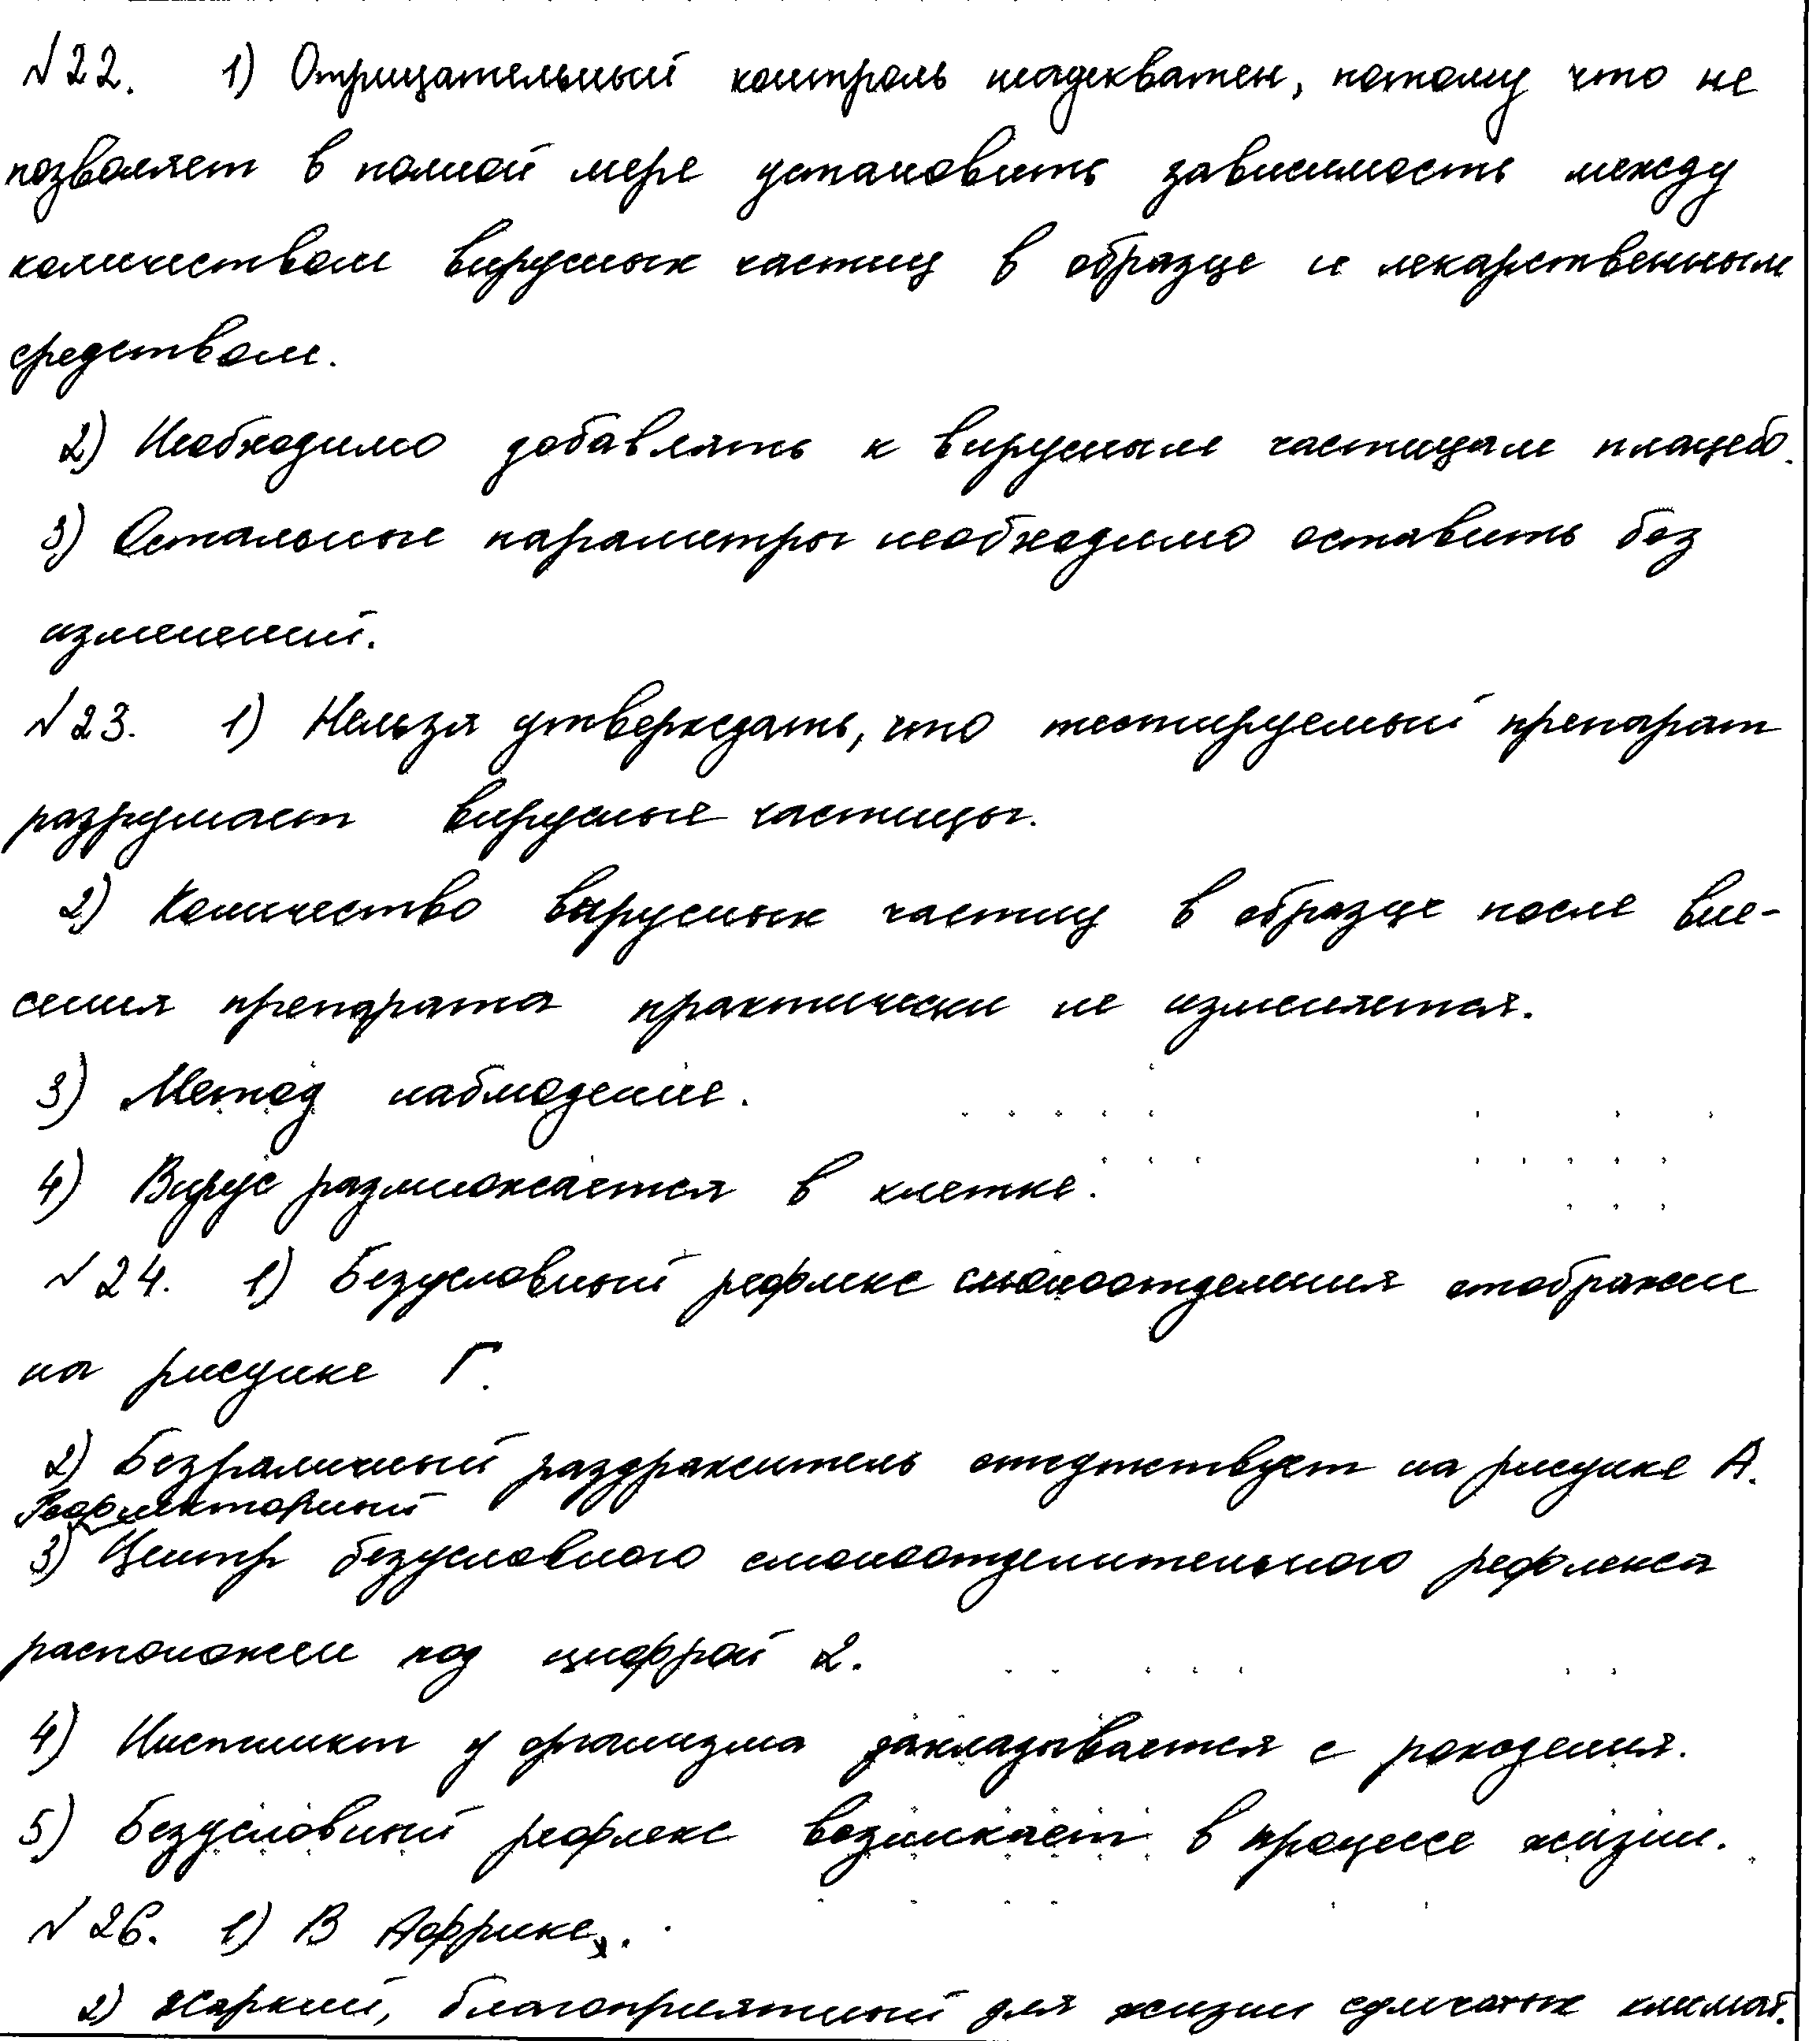 №22. 1) Отрицательный контроль неадекватен, потому что не
позволяет в полной мере установить зависимость между
количеством вирусных частиц в образце и лекарственным
средством.
2) Необходимо добавлять к вирусным частицам плацебо.
3) Остальные параметры необходимо оставить без
изменений.
№23. 1) Нельзя утверждать, что тестируемый препарат
разрушает вирусные частицы.
2) Количество вирусных частиц в образце после вне-
сения препарата практически не изменяется.
3) Метод наблюдение.
4) Вирус размножается в клетке.
№24. 1) Безусловный рефлекс слюноотделения отображен
на рисунке Г.
2) Безразличный раздражитель отсутствует на рисунке А.
Рефлекторный
3) Центр безусловного слюноотделительного рефлекса
расположен под цифрой 2.
4) Инстинкт у организма закладывается с рождения.
5) Безусловный рефлекс возникает в процессе жизни.
№26. 1) В Африке.
2) Жаркий, благоприятный для жизни сумчатых климат.